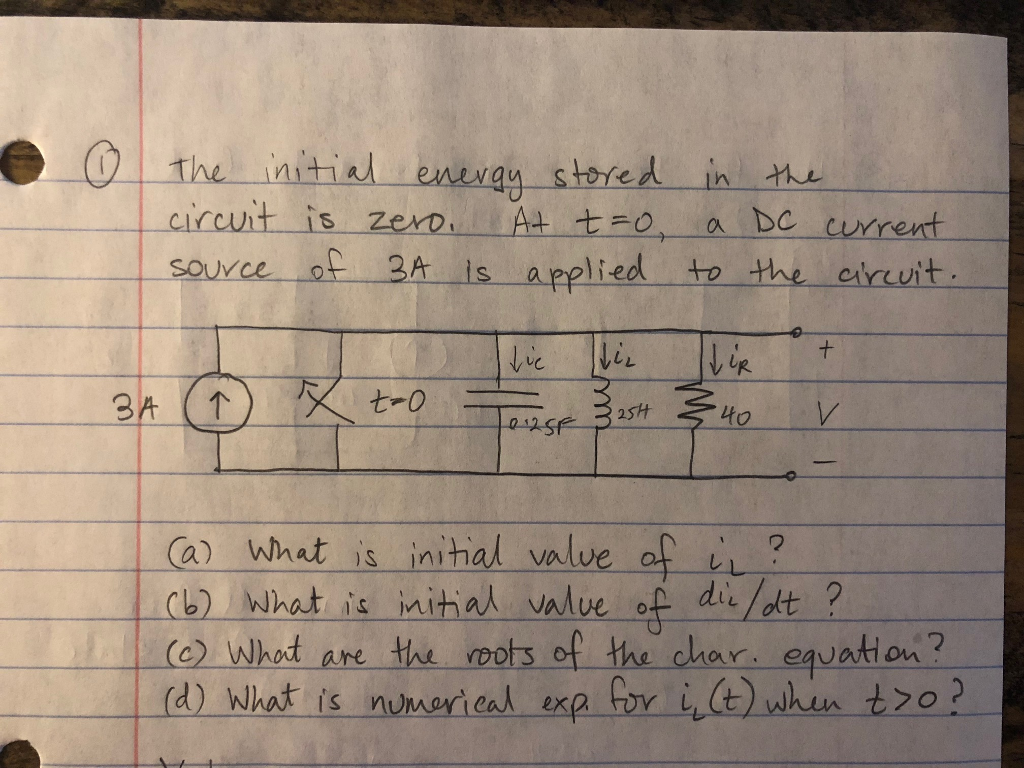 ① The initial energy stored in the
circuit is zero. At t=0, a DC current
source of 3A is applied to the circuit.
↓ic ↓iL ↓iR +
3A ↑ t=0 0.25F 25H 40 V
−
(a) What is initial value of iL ?
(b) What is initial value of diL/dt ?
(c) What are the roots of the char. equation?
(d) What is numerical exp. for iL(t) when t>0 ?